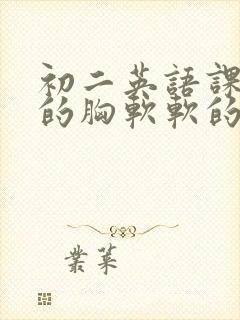 初二英語課
的胸軟軟的